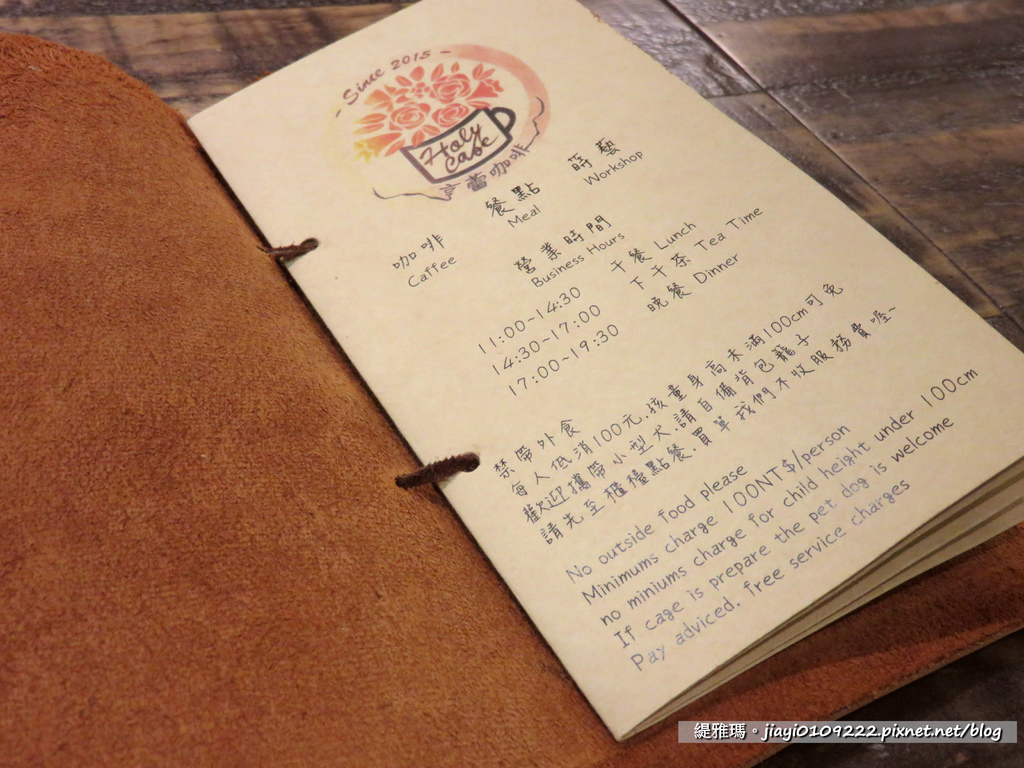 Since 2015
Holy Cafe
咖啡
Coffee
餐點
Meal
蒔藝
Workshop
營業時間
Business Hours
11:00~14:30 午餐 Lunch
14:30~17:00 下午茶 Tea Time
17:00~19:30 晚餐 Dinner
禁帶外食
每人低消100元.孩童身高未滿100cm可免
歡迎攜帶小型犬.請自備背包籠子
請先至櫃檯點餐.買單我們不收服務費喔~
No outside food please
Minimums charge 100NT$/person
no miniums charge for child height under 100cm
If cage is prepare the pet dog is welcome
Pay adviced. free service charges
緹雅瑪。jiayi0109222.pixnet.net/blog